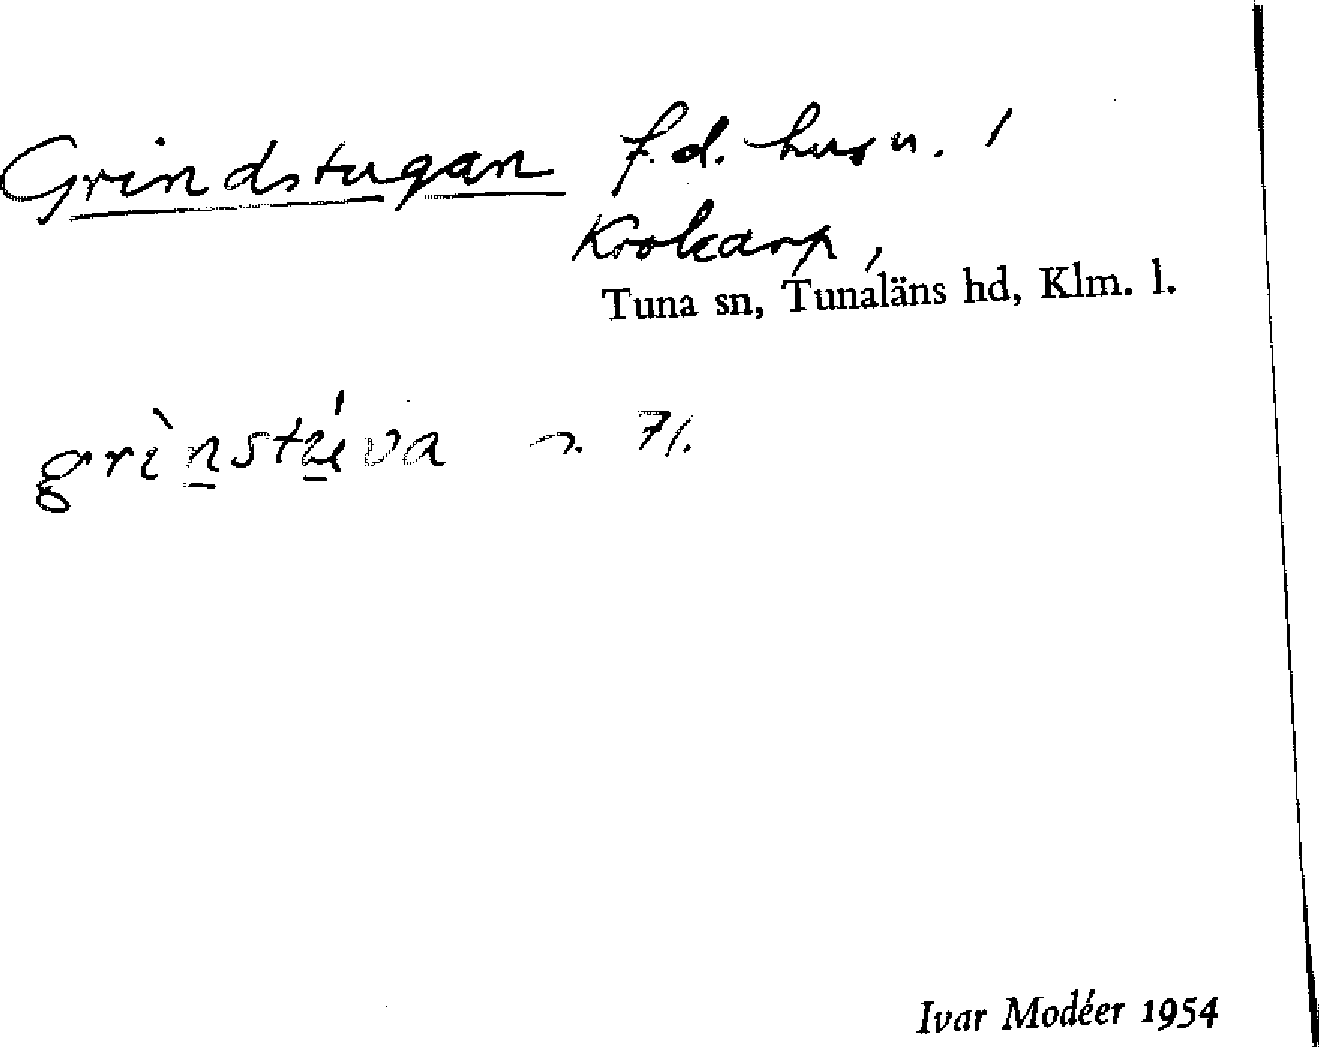 Grindstugan f.d. husn. /
Krokarp,
Tuna sn, Tunaläns hd, Klm. l.
grìnstúva n. 71.
Ivar Modéer 1954